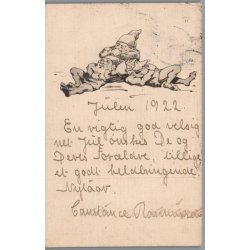 Julen 1922.
En rigtig god velsig
net Jul ønskes De og
Deres Forældre, tillige
et godt heldbringende
Nytaar.
Constance